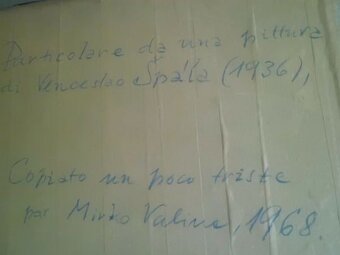 Particolare da una pittura
di Venceslao Špála (1936),
Copiato un poco triste
par Mirko Valina, 1968.